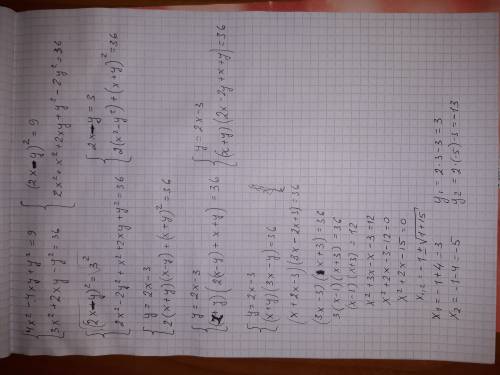 { 4x² - 4xy + y² = 9
{ 3x² + 2xy - y² = 36
{ (2x - y)² = 9
{ 2x² + x² + 2xy + y² - 2y² = 36
{ (2x - y)² = 3²
{ 2x² - 2y² + x² + 2xy + y² = 36
{ 2x - y = 3
{ 2(x² - y²) + (x + y)² = 36
{ y = 2x - 3
{ 2(x + y)(x - y) + (x + y)² = 36
{ y = 2x - 3
{ (x + y)(2(x - y) + x + y) = 36
{ y = 2x - 3
{ (x + y)(2x - 2y + x + y) = 36
{ y = 2x - 3
{ (x + y)(3x - y) = 36
(x + 2x - 3)(3x - 2x + 3) = 36
(3x - 3)(x + 3) = 36
3(x - 1)(x + 3) = 36
(x - 1)(x + 3) = 12
x² + 3x - x - 3 = 12
x² + 2x - 3 - 12 = 0
x² + 2x - 15 = 0
x₁,₂ = -1 ± √1+15
x₁ = -1 + 4 = 3
x₂ = -1 - 4 = -5
y₁ = 2·3 - 3 = 3
y₂ = 2·(-5) - 3 = -13